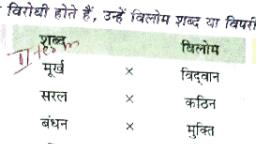 विरोधी होते हैं, उन्हें विलोम शब्द या विपरी
शब्द विलोम
मूर्ख × विद्वान
सरल × कठिन
बंधन × मुक्ति